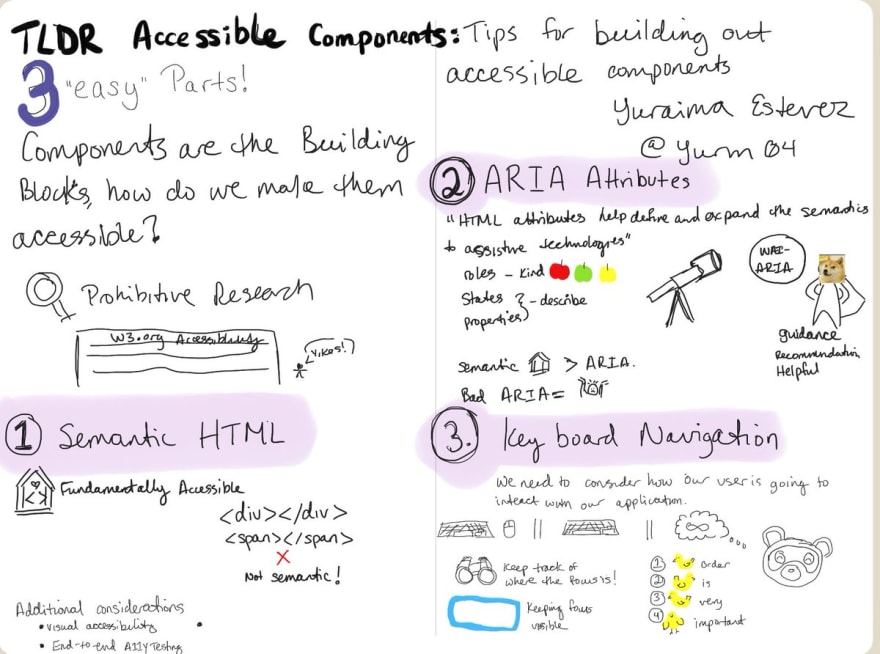 TLDR Accessible Components: Tips for building out
accessible components
Yuraima Estevez
@yurm04
3 "easy" Parts!
Components are the Building
Blocks, how do we make them
accessible?
Prohibitive Research
W3.org Accessibility
Yikes!
1 Semantic HTML
Fundamentally Accessible
<div></div>
<span></span>
X
Not semantic!
Additional considerations
• visual accessibility
•
• End-to-end A11Y Testing
2 ARIA Attributes
"HTML attributes help define and expand the semantics
to assistive technologies"
roles - kind
States } - describe
Properties
WAI-
ARIA
guidance
Recommendation
Helpful
Semantic > ARIA.
Bad ARIA =
3. Keyboard Navigation
We need to consider how our user is going to
interact with our application.
|| || ∞
Keep track of
where the focus is!
Keeping focus
visible
1 order
2 is
3 very
4 important